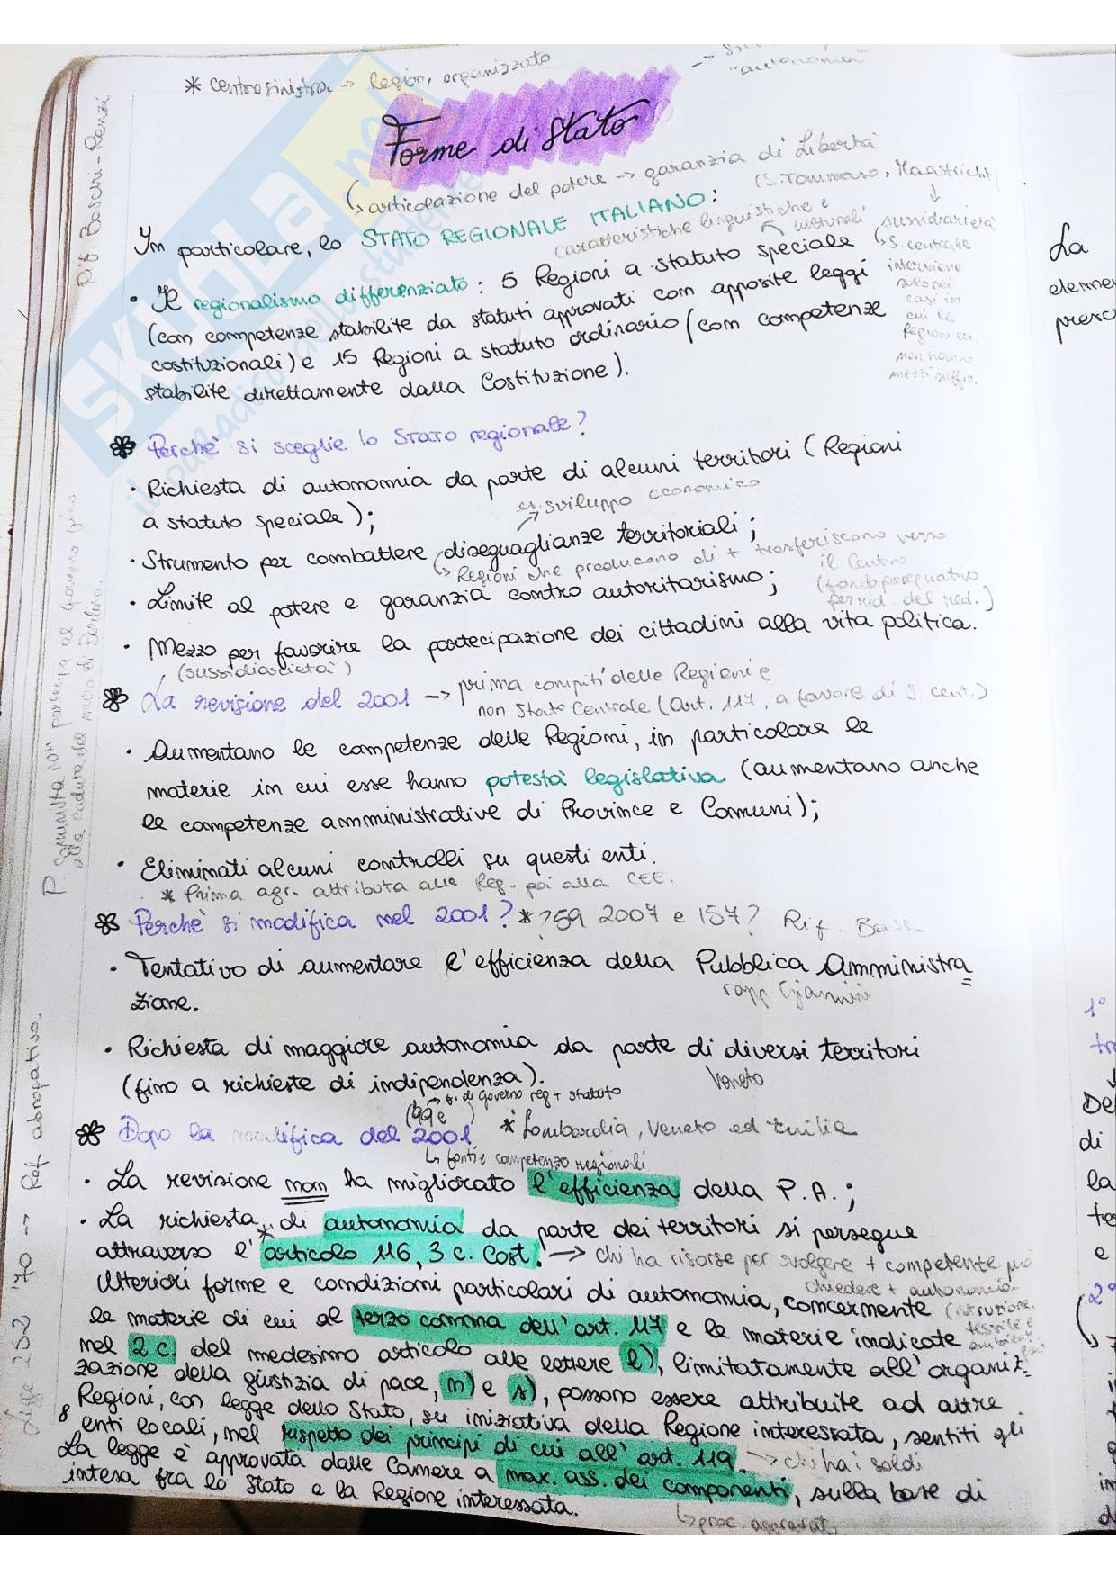 * centrosinistra → Region. organizzato
"autonomia"
Forme di Stato
↳ articolazione del potere → garanzia di libertà
(S. Tommaso, Maastricht)
In particolare, lo STATO REGIONALE ITALIANO:
caratteristiche linguistiche e culturali
sussidiarietà
↳ S. centrale
interviene
solo nei
casi in
cui le
Regioni
non hanno
mezzi suffic.
• Il regionalismo differenziato: 5 Regioni a statuto speciale
(con competenze stabilite da statuti approvati con apposite leggi
costituzionali) e 15 Regioni a statuto ordinario (con competenze
stabilite direttamente dalla Costituzione).
Rif Boschi-Renzi
Perché si sceglie lo Stato regionale?
• Richiesta di autonomia da parte di alcuni territori (Regioni
a statuto speciale);
es. sviluppo economico
• Strumento per combattere diseguaglianze territoriali;
↳ Regioni che producono di + trasferiscono verso
il Centro
(fondo perequativo
• Limite al potere e garanzia contro autoritarismo;
• Mezzo per favorire la partecipazione dei cittadini alla vita politica.
(sussidiarietà)
La revisione del 2001 → prima compiti delle Regioni e
non Stato Centrale (art. 117, a favore di S. cent.)
• Aumentano le competenze delle Regioni, in particolare le
materie in cui esse hanno potestà legislativa (aumentano anche
le competenze amministrative di Province e Comuni);
• Eliminati alcuni controlli su questi enti.
* Prima agr. attributa alle Reg. poi alla CEE.
Perché si modifica nel 2001? * 59 2007 e 157? Rif.
• Tentativo di aumentare l'efficienza della Pubblica Amministra
zione.
rapp Giannini
• Richiesta di maggiore autonomia da parte di diversi territori
(fino a richieste di indipendenza).
Veneto
f. di governo reg + statuto
Dopo la modifica del 2001 * Lombardia, Veneto ed Emilia
↳ fonti e competenze regionali
• La revisione non ha migliorato l'efficienza della P.A.;
• La richiesta * di autonomia da parte dei territori si persegue
attraverso l'articolo 116, 3 c. Cost. → chi ha risorse per svolgere + competente può
chiedere + autonomia
Ulteriori forme e condizioni particolari di autonomia, concernente (istruzione,
le materie di cui al terzo comma dell'art. 117 e le materie indicate
nel 2 c. del medesimo articolo alle lettere l), limitatamente all'organiz
zazione della giustizia di pace, n) e s), possono essere attribuite ad altre
Regioni, con legge dello Stato, su iniziativa della Regione interessata, sentiti gli
enti locali, nel rispetto dei principi di cui all'art. 119. → chi ha i soldi
La legge è approvata dalle Camere a max. ass. dei componenti, sulla base di
intesa fra lo Stato e la Regione interessata.
↳ proc. aggravato
→ Ref. abrogativo.
La
presc
1°
De
di
la
e
2°